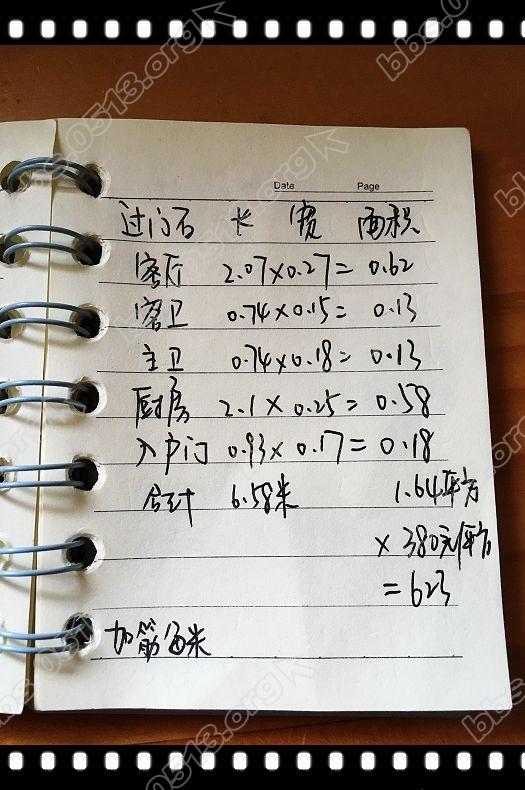 bbs.0513.org
bbs.0513.org
Date Page
过门石 长 宽 面积
客厅 2.07×0.27=0.62
客卫 0.74×0.15=0.13
主卫 0.74×0.18=0.13
厨房 2.1×0.25=0.58
入户门 0.93×0.17=0.18
合计 6.58米 1.64平方
×380元/平方
=623
加筋 米